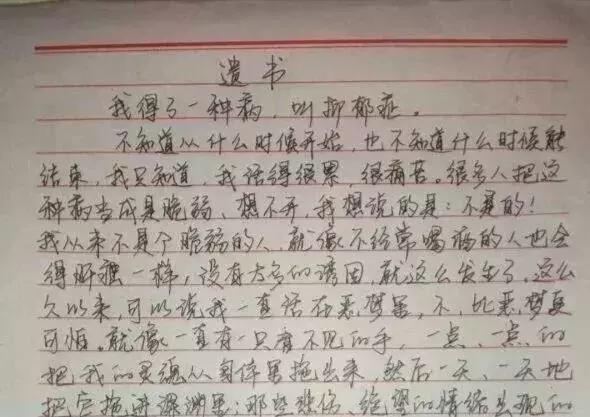 遗书
我得了一种病，叫抑郁症。
不知道从什么时候开始，也不知道什么时候能
结束，我只知道，我活得很累，很痛苦。很多人把这
种病当成是脆弱、想不开，我想说的是：不是的！
我从来不是个脆弱的人，就像不经常喝酒的人也会
得肝癌一样，没有太多的诱因，就这么发生了，这么
久以来，可以说我一直活在恶梦里，不，比恶梦更
可怕。就像一直有一只看不见的手，一点、一点的
把我的灵魂从身体里拖出来，然后一天、一天地
把它拖进深渊里；那些悲伤、绝望的情绪出现的